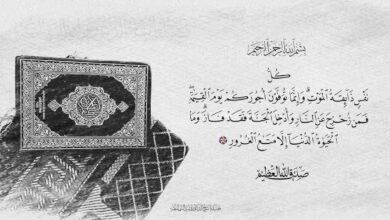 بِسْمِ ٱللَّهِ ٱلرَّحْمَٰنِ ٱلرَّحِيمِ
كُلُّ
نَفْسٖ ذَآئِقَةُ ٱلْمَوْتِ وَإِنَّمَا تُوَفَّوْنَ أُجُورَكُمْ يَوْمَ ٱلْقِيَٰمَةِ
فَمَن زُحْزِحَ عَنِ ٱلنَّارِ وَأُدْخِلَ ٱلْجَنَّةَ فَقَدْ فَازَ وَمَا
ٱلْحَيَوٰةُ ٱلدُّنْيَآ إِلَّا مَتَٰعُ ٱلْغُرُورِ
صدق الله العظيم